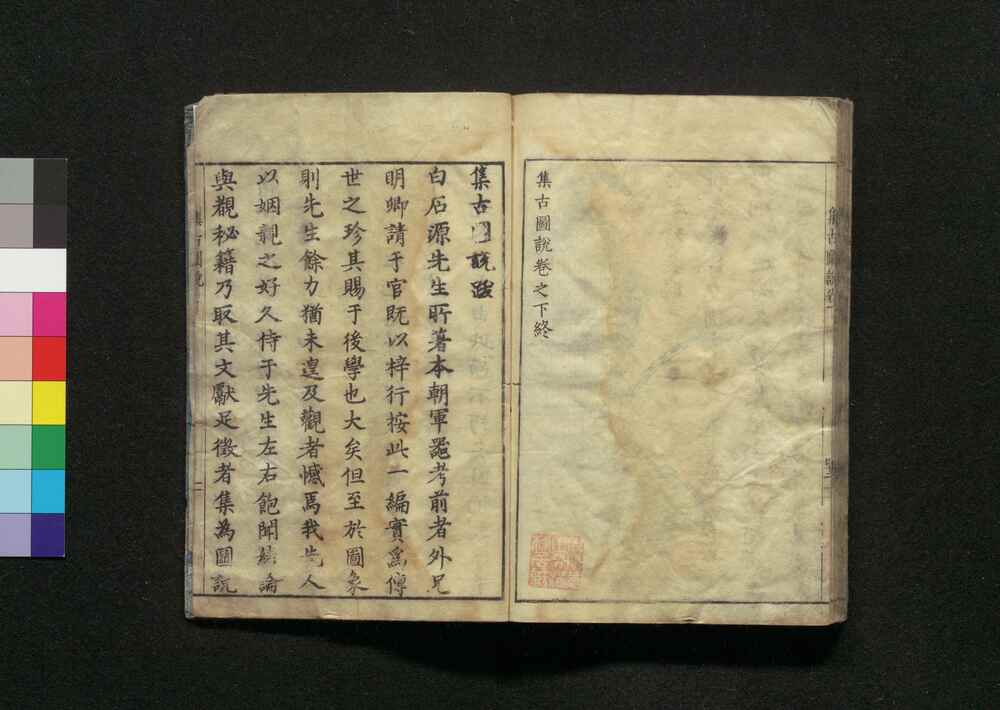 集古圖說卷之下終
集古圖說跋
白石源先生所著本朝軍器考前者外兄
明卿請于官既以梓行按此一編實為傳
世之珍其賜于後學也大矣但至於圖象
則先生餘力猶未遑及觀者憾焉我先人
以姻親之好久侍于先生左右飽聞緒論
與觀秘籍乃取其文獻足徵者集為圖說
集古圖說
二